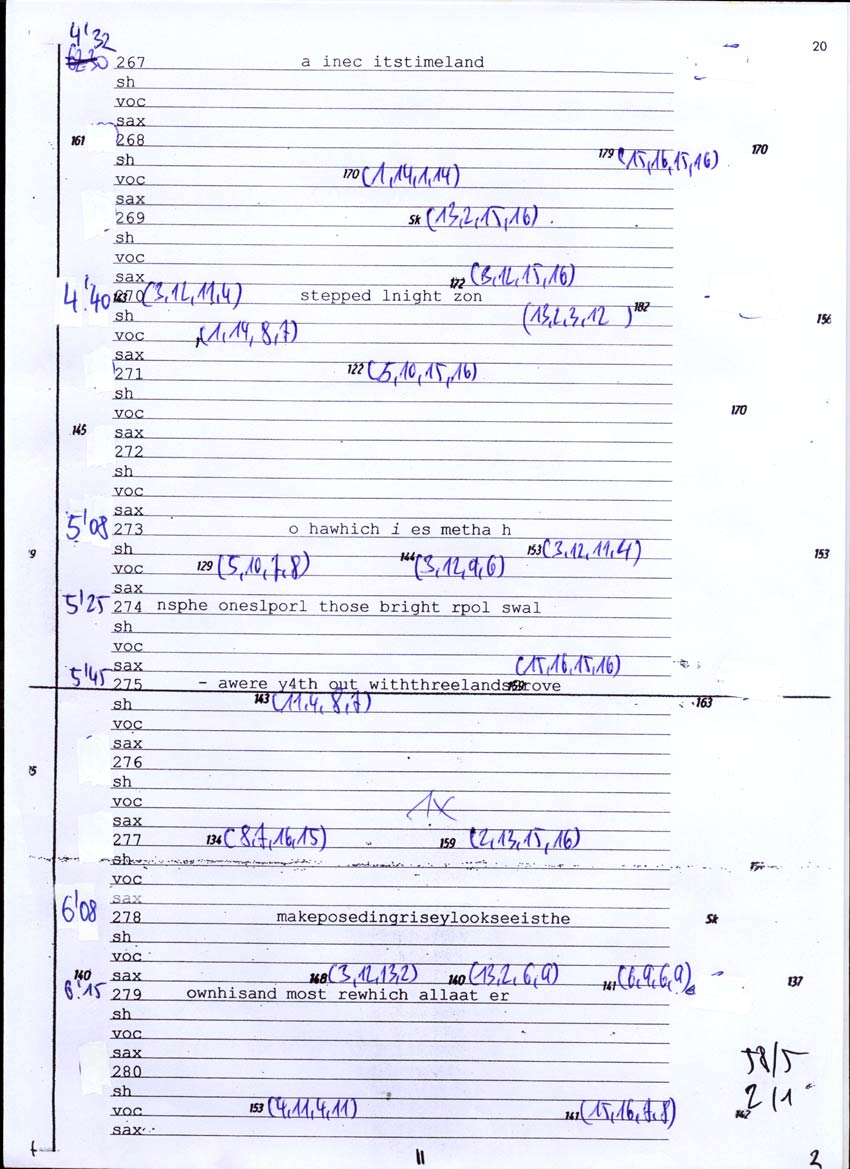 4'32
20
267 a inec itstimeland
sh
voc
sax
161 268
sh 179 (15,16,15,16) 170
voc 170 (1,14,1,14)
sax
269 Sk (13,2,15,16)
sh
voc
sax 172 (3,12,15,16)
4'40 270 (3,12,11,4) stepped lnight zon
sh (13,2,3,12) 182 156
voc (1,14,8,7)
sax
271 122 (5,10,15,16)
sh
voc 170
145 sax
272
sh
voc
sax
5'08 273 o hawhich i es metha h
9 sh 153 (3,12,11,4) 153
voc 129 (5,10,7,8) 144 (3,12,9,6)
sax
5'25 274 nsphe oneslporl those bright rpol swal
sh
voc
sax (15,16,15,16)
5'45 275 - awere y4th out withthreelandsgrove
sh 143 (11,4,8,7) 163
voc
sax
276
15 sh
voc 1x
sax
277 134 (8,7,16,15) 159 (2,13,15,16)
sh
voc
sax
6'08 278 makeposedingriseylookseeisthe Sk
sh
voc
140 sax 148 (3,12,13,2) 140 (13,2,6,9) 141 (6,9,6,9) 137
6'15 279 ownhisand most rewhich allaat er
sh
voc
sax
280 58/5
sh 2/1
voc 153 (4,11,4,11) 141 (15,16,7,8) 142
sax
11 2